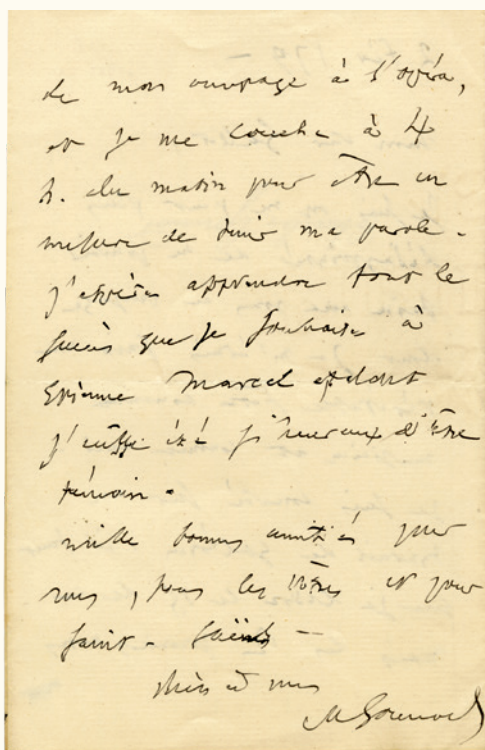 de mon ouvrage à l'opéra,
et je me couche à 4
h. du matin pour être en
mesure de tenir ma parole.
j'espère apprendre tout le
succès que je souhaite à
Etienne Marcel et dont
j'eusse été si heureux d'être
témoin.
mille bonnes amitiés pour
vous, pour les vôtres et pour
Saint-Saëns —
bien à vous
Ch Gounod